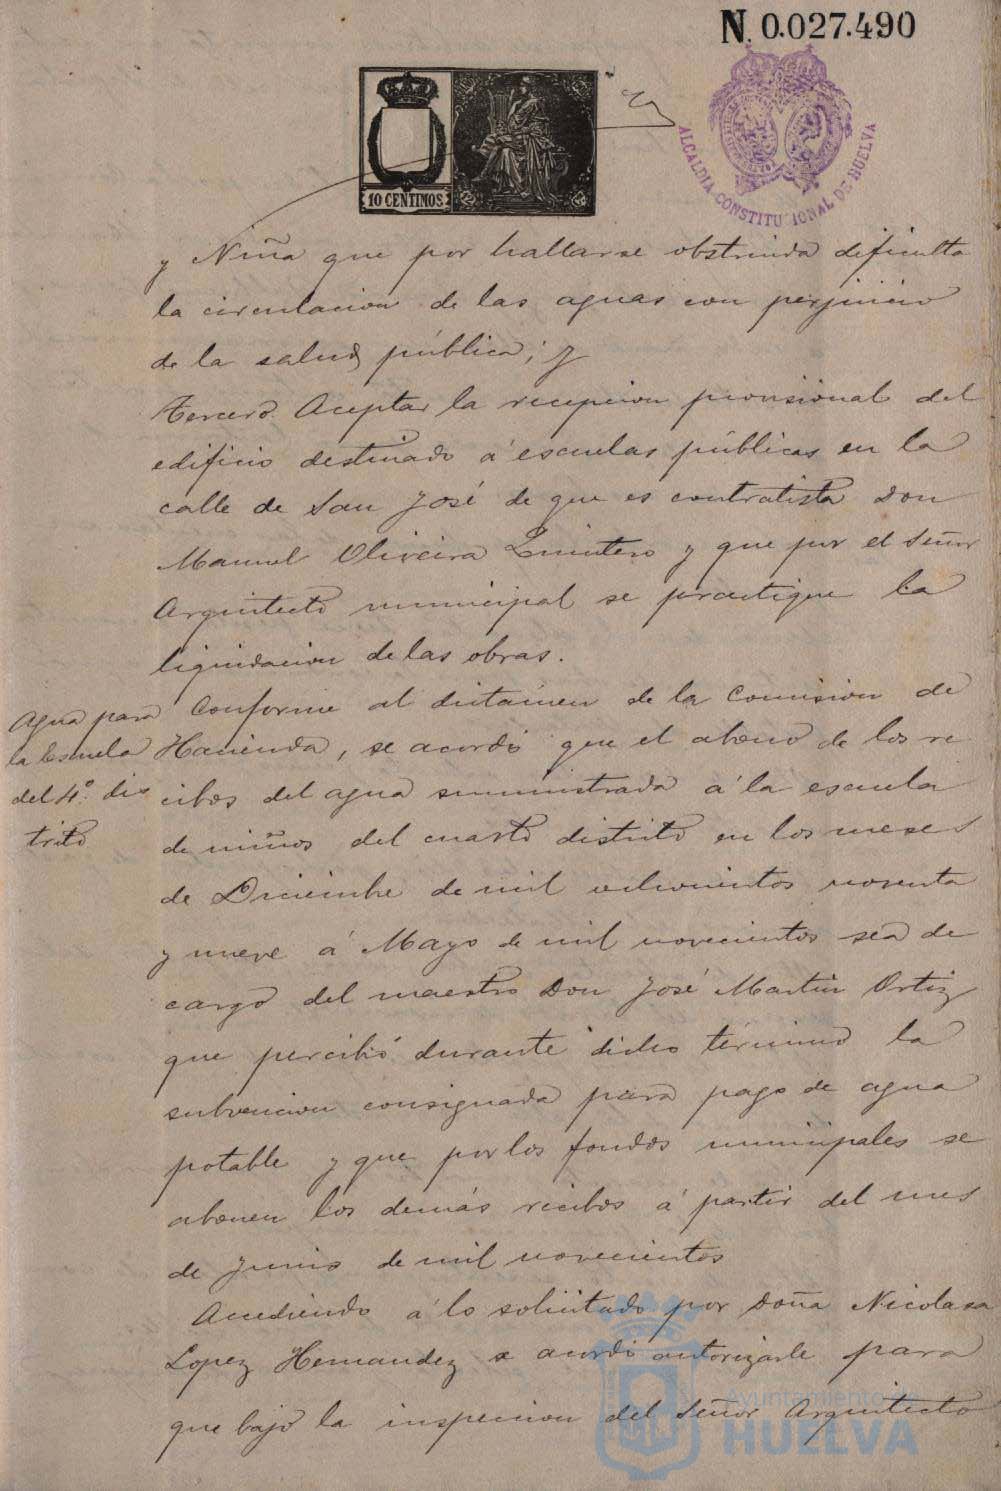 N. 0.027.490
10 CENTIMOS
ALCALDIA CONSTITUCIONAL DE HUELVA
y Niña que por hallarse obstruida dificulta
la circulacion de las aguas con perjuicio
de la salud pública; y
Tercero. Aceptar la recepcion provisional del
edificio destinado á escuelas públicas en la
calle de San José de que es contratista Don
Manuel Oliveira Quintero y que por el Señor
Arquitecto municipal se practique la
liquidacion de las obras.
Agua para
la Escuela
del 4º. dis
trito
Conforme al dictámen de la Comision de
Hacienda, se acordó que el abono de los re
cibos del agua suministrada á la escuela
de niños del cuarto distrito en los meses
de Diciembre de mil ochocientos noventa
y nueve á Mayo de mil novecientos sea de
cargo del maestro Don José Martin Ortiz
que percibió durante dicho término la
subvencion consignada para pago de agua
potable y que por los fondos municipales se
abonen los demás recibos á partir del mes
de Junio de mil novecientos
Accediendo á lo solicitado por Doña Nicolasa
Lopez Hernandez se acordó autorizarle para
que bajo la inspeccion del Señor Arquitecto
Ayuntamiento de
HUELVA